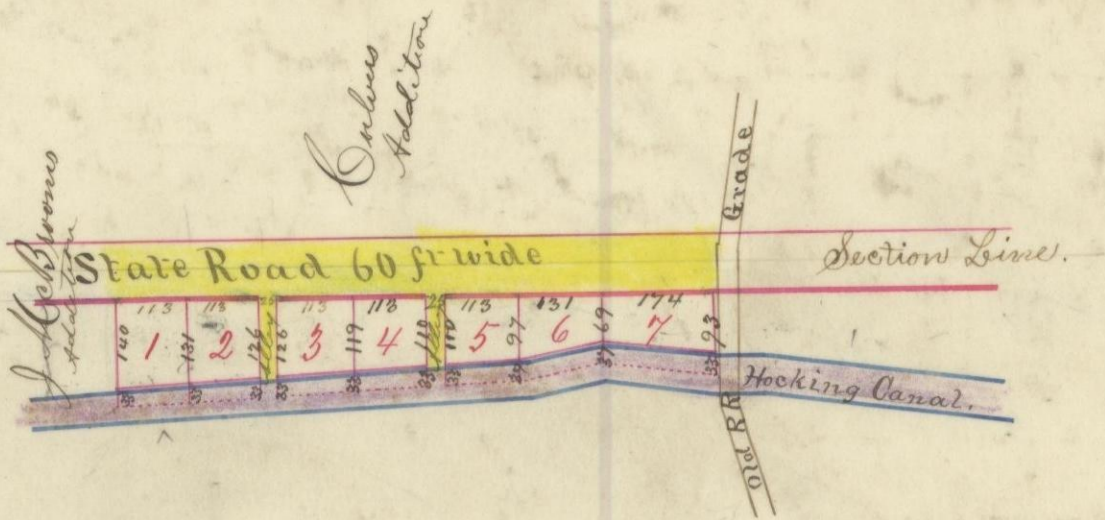 Culvers
Addition
Addition
State Road 60 ft wide
Section Line.
Old RR Grade
113 113 25 113 113 25 113 131 174
140 1 131 2 126 Alley 126 3 119 4 110 Alley 110 5 97 6 69 7 93
33 33 33 33 33 33 33 33
Hocking Canal.